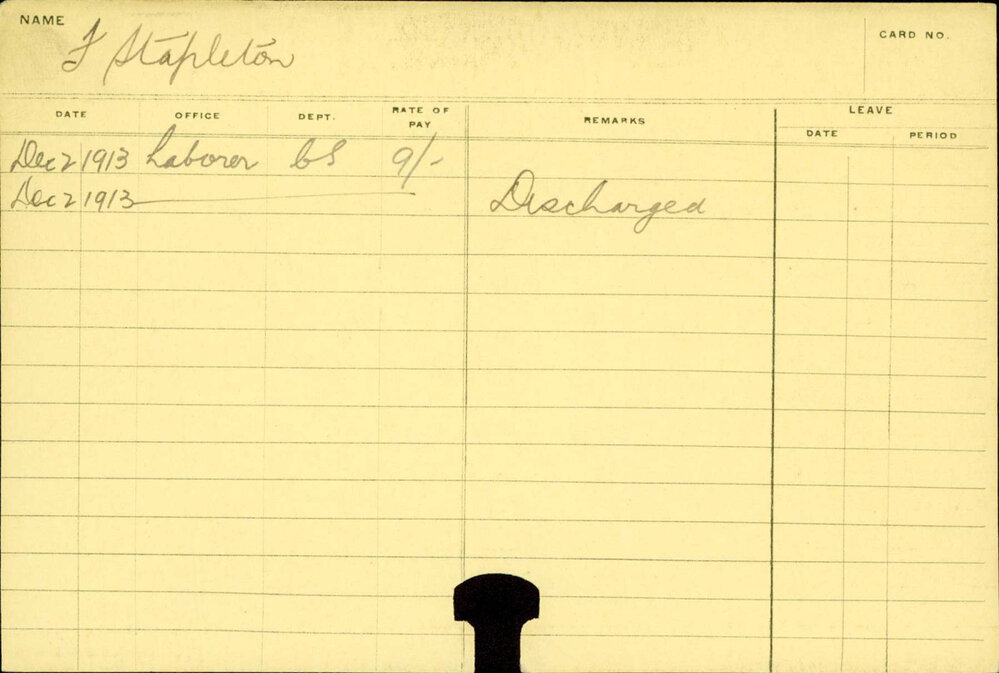 NAME
F Stapleton
CARD NO.
DATE OFFICE DEPT. RATE OF PAY REMARKS LEAVE
DATE PERIOD
Dec 2 1913 Laborer 9/-
Dec 2 1913 Discharged